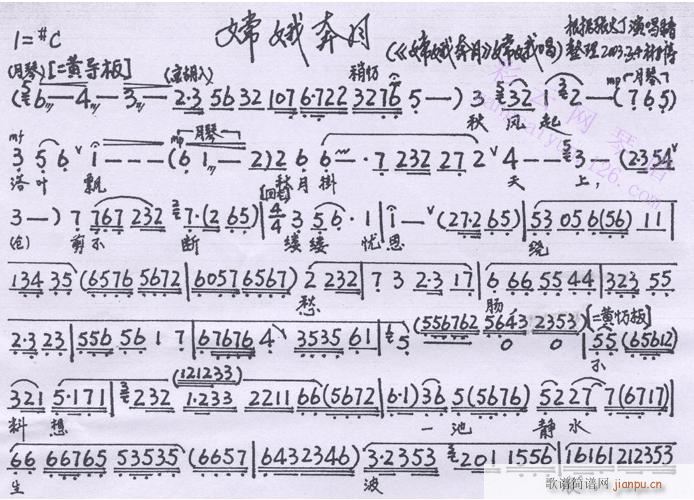 1=#C 嫦娥奔月
(《嫦娥奔月》嫦娥唱) 根据张火丁演唱
(月琴) [二黄导板] (京胡入) 稍快 月琴
(6—4—3—— 2·3 56 32 107 6·722 3276 5—) 3 32 1 2——(7 6 5)
秋 风 起
mf mp 月琴
3 5 6 1———(6 1—— 2) 2 6 6 · 7 232 27 2 4—— 3 (2·354
落 叶 飘 秋 月 掛 天 上,
[回龙]
3—) 7 767 232 7·(2 65) 4/4 3 56 · 1 1—(27·2 65) 53 05 6(56) 11
(仓) 剪 不 断 缕 缕 忧 思 绕
134 35 (6576 5672 6057 6567) 2 232 7 3 2·3 17 6 66 55 44 323 55
愁 肠
[二黄快板]
2·3 23 556 56 1 7 67676 4 3535 61 5 (556762 5643 2353) 0 0 55 (65612)
不
(121233)
321 5·171 232 1·233 2211 66 (5672 6·1) 36 5(5676) 52 27 7(6717)
料 想 一 池 静 水
66 66765 53535 (6657 6432346) 3·2353 201 1556 16161212353
生 波
歌谱简谱网 jianpu.cn